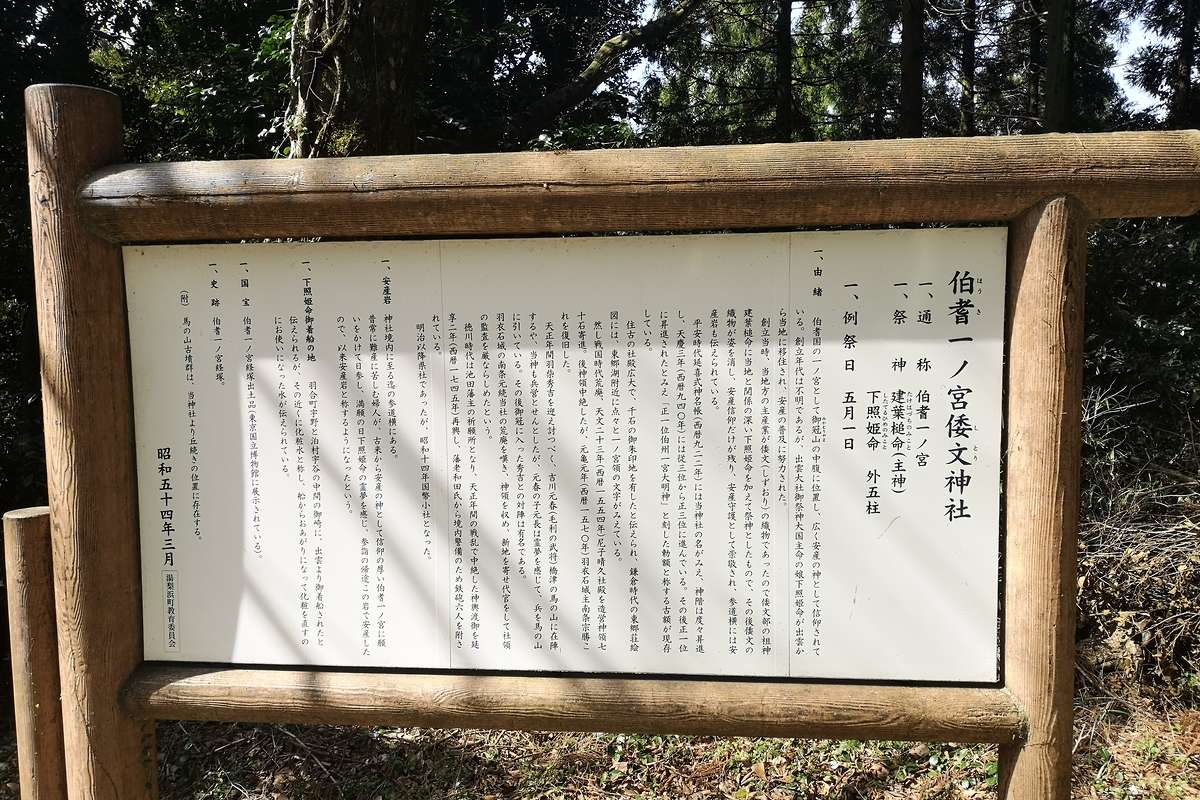 伯耆一ノ宮倭文神社
ほうき しとり
一、通 称 伯耆一ノ宮
一、祭 神 建葉槌命(主神)
たけはづちのみこと
下照姫命 外五柱
したてるひめのみこと
一、例 祭 日 五月一日
一、由 緒
伯耆国の一ノ宮として御冠山の中腹に位置し、広く安産の神として信仰されて
いる。創立年代は不明であるが、出雲大社御祭神大国主命の娘下照姫命が出雲か
ら当地に移住され、安産の普及に努力された。
創立当時、当地方の主産業が倭文(しずおり)の織物であったので倭文部の祖神
建葉槌命に当地と関係の深い下照姫命を加えて祭神としたもので、その後倭文の
織物が姿を消し、安産信仰だけが残り、安産守護として崇敬され、参道横には安
産岩も伝えられている。
平安時代延喜式神名帳(西暦九二二年)には当神社の名がみえ、神階は度々昇進
し、天慶三年(西暦九四〇年)には従三位から正三位に進んでいる。その後正一位
に昇進されたとみえ「正一位伯州一宮大明神」と刻した勅額と称する古額が現存
している。
住古の社殿広大で、千石の御朱印地を有したと伝えられ、鎌倉時代の東郷荘絵
図には、東郷湖附近に点々と一ノ宮領の文字がみえている。
然し戦国時代荒廃、天文二十三年(西暦一五五四年)尼子晴久社殿を造営神領七
十石寄進。後神領中絶したが、元亀元年(西暦一五七〇年)羽衣石城主南条宗勝こ
れを復旧した。
天正年間羽柴秀吉を迎え討つべく、吉川元春(毛利の武将)橋津の馬の山に在陣
するや、当神も兵営とせんとしたが、元春の子元長は霊夢を感じて、兵を馬の山
に引いている。その後御冠に入った秀吉との対陣は有名である。
羽衣石城の南条元続当社の荒廃を嘆き、神領を収め、新地を寄せ代官をして社領
の監査を厳ならしめたという。
徳川時代は池田藩主の祈願所となり、天正年間の戦乱で中絶した神輿渡御を延
享二年(西暦一七四五年)再興し、藩老和田氏から境内警備のため鉄砲六人を附さ
れている。
明治以降県社であったが、昭和十四年国幣小社となった。
一、安産岩 神社境内に至る迄の参道横にある。
昔常に難産に苦しむ婦人が、古来から安産の神として信仰の厚い伯耆一ノ宮に願
いをかけて日参し、満願の日下照姫命の霊夢を感じ、参詣の帰途この岩で安産した
ので、以来安産岩と称するようになったという。
一、下照姫命御着船の地 羽合町宇野と泊村宇谷の中間の御崎に、出雲より御着船されたと
伝えられるが、その近くに化粧水と称し、船からおあがりになって化粧を直すの
にお使いになった水が伝えられている。
一、国 宝 伯耆一ノ宮経塚出土品(東京国立博物館に展示されている)。
一、史 跡 伯耆一ノ宮経塚。
(附) 馬の山古墳群は、当神社より丘続きの位置に存在する。
昭和五十四年三月 湯梨浜町教育委員会